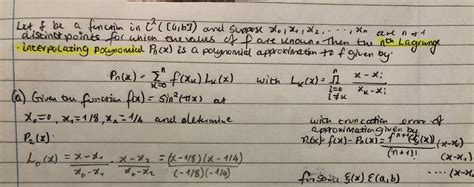 Let f be a function in C^n([a,b]) and suppose x_0, x_1, x_2, ..., x_n are n+1
distinct points for which the value of f are known. Then the nth Lagrange
interpolating polynomial P_n(x) is a polynomial approximation to f given by:
P_n(x) = Σ_{k=0}^{n} f(x_k) L_k(x) with L_k(x) = ∏_{i=0, i≠k}^{n} (x - x_i)/(x_k - x_i)
(a) Given the function f(x) = sin²(πx) at
x_0=0, x_1=1/8, x_2=1/4 and determine
P_2(x):
L_0(x) = (x-x_1)/(x_0-x_1) · (x-x_2)/(x_0-x_2) = (x-1/8)(x-1/4)/(-1/8)(-1/4)
with truncation error of
approximation given by
R(x) = f(x) - P_n(x) = f^{n+1}(ξ(x))/(n+1)! (x-x_0)
(x-x_1)
...(x-x_n)
for some ξ(x) ∈ (a,b)